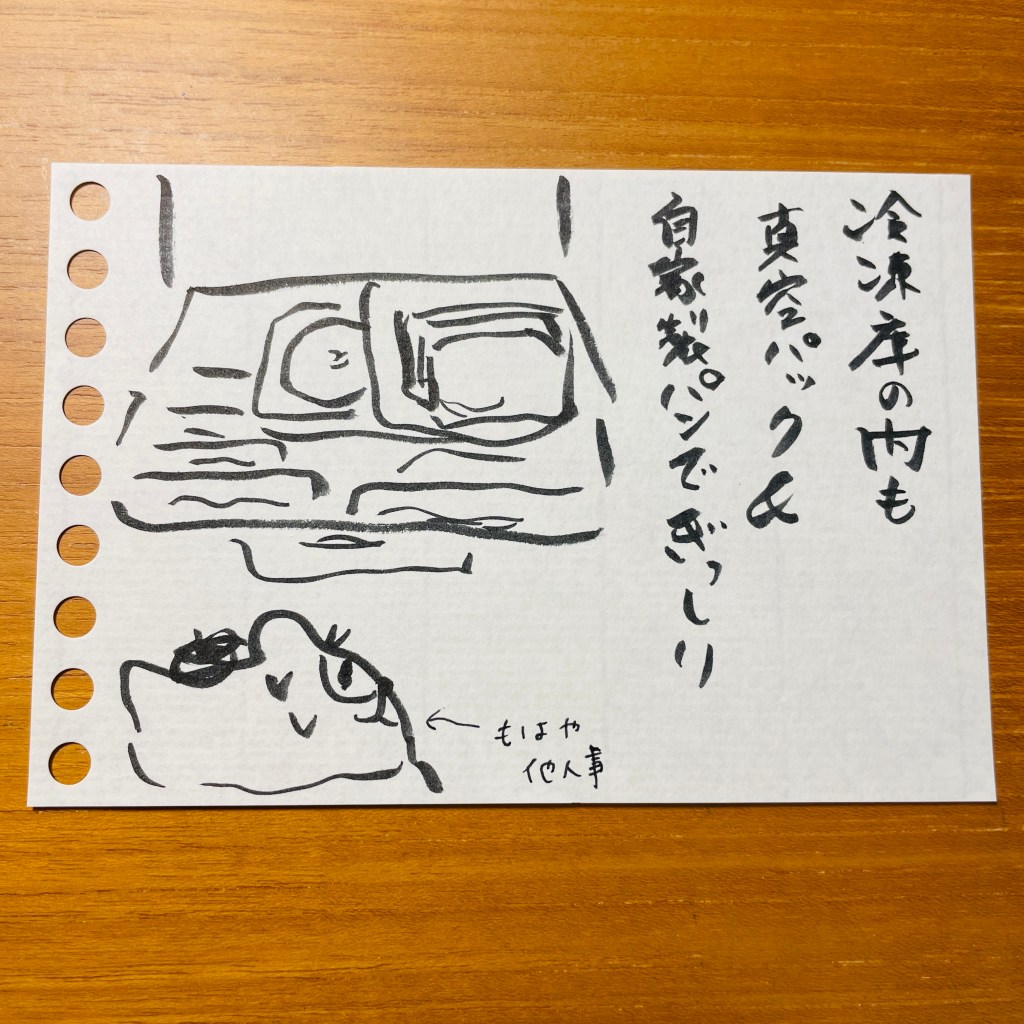 冷凍庫の内も
真空パック&
自家製パンでぎっしり
← もはや
他人事